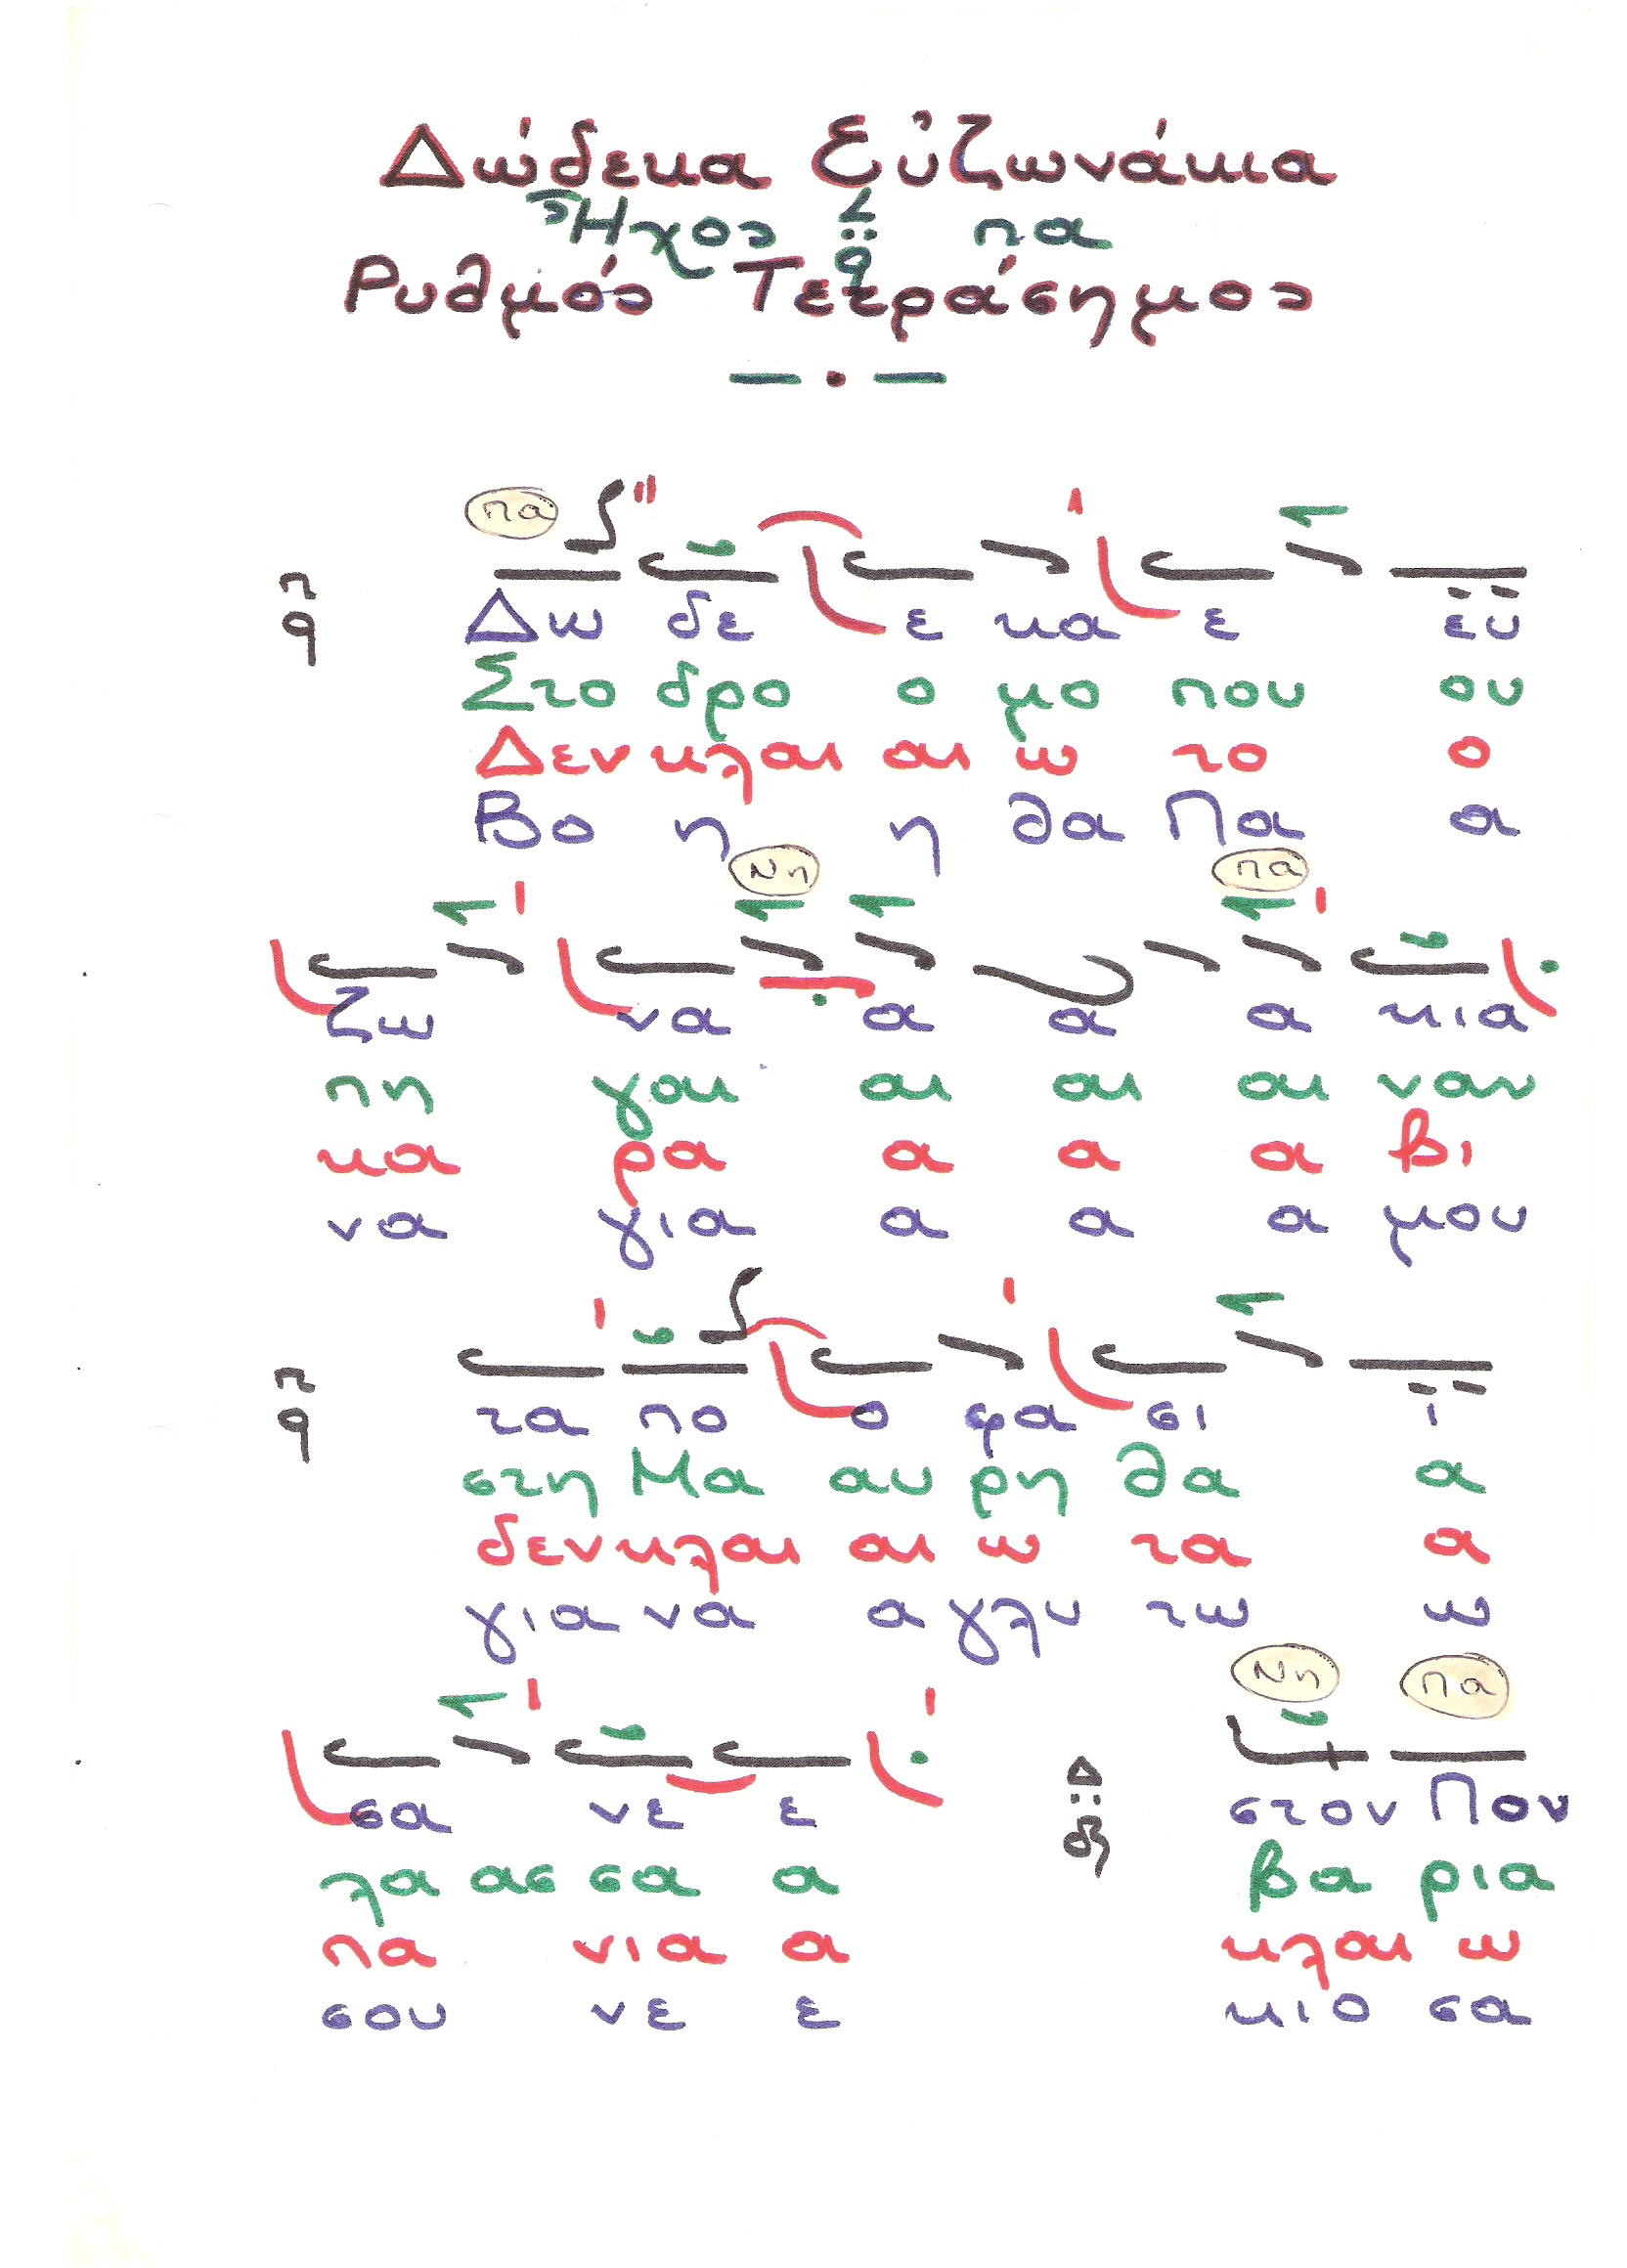 Δώδεκα Εὐζωνάκια
Ἦχος πα
Ρυθμός Τετράσημος
πα
Δω δε ε κα ε ευ
Στο δρο ο μο που ου
Δεν κλαι αι ω το ο
Βο η η θα Πα α
Νη πα
ζω να α α α κια
πη γαι αι αι αι ναν
κα ρα α α α βι
να για α α α μου
τα πο ο φα σι ι
στη Μα αυ ρη θα α
δεν κλαι αι ω τα α
για να α γλυ τω ω
Νη πα
σα νε ε στον Πον
λα ασ σα α βα ρια
πα νια α κλαι ω
σου νε ε κιο σα